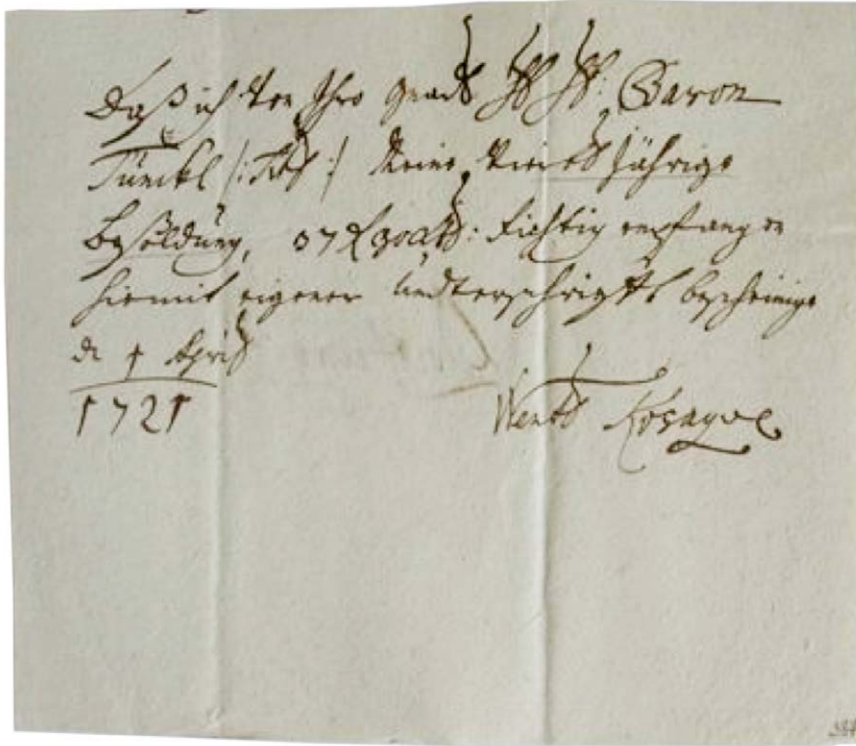 Daß ich von Ihro Gnad H: H: Baron
Tünckl /: Titl :/ meine Viertl Jährige
Besoldung, 37 f 30 : Richtig empfangen
hiermit eigener Undterschrifft bescheinige
de 1 April
1721
Wentz